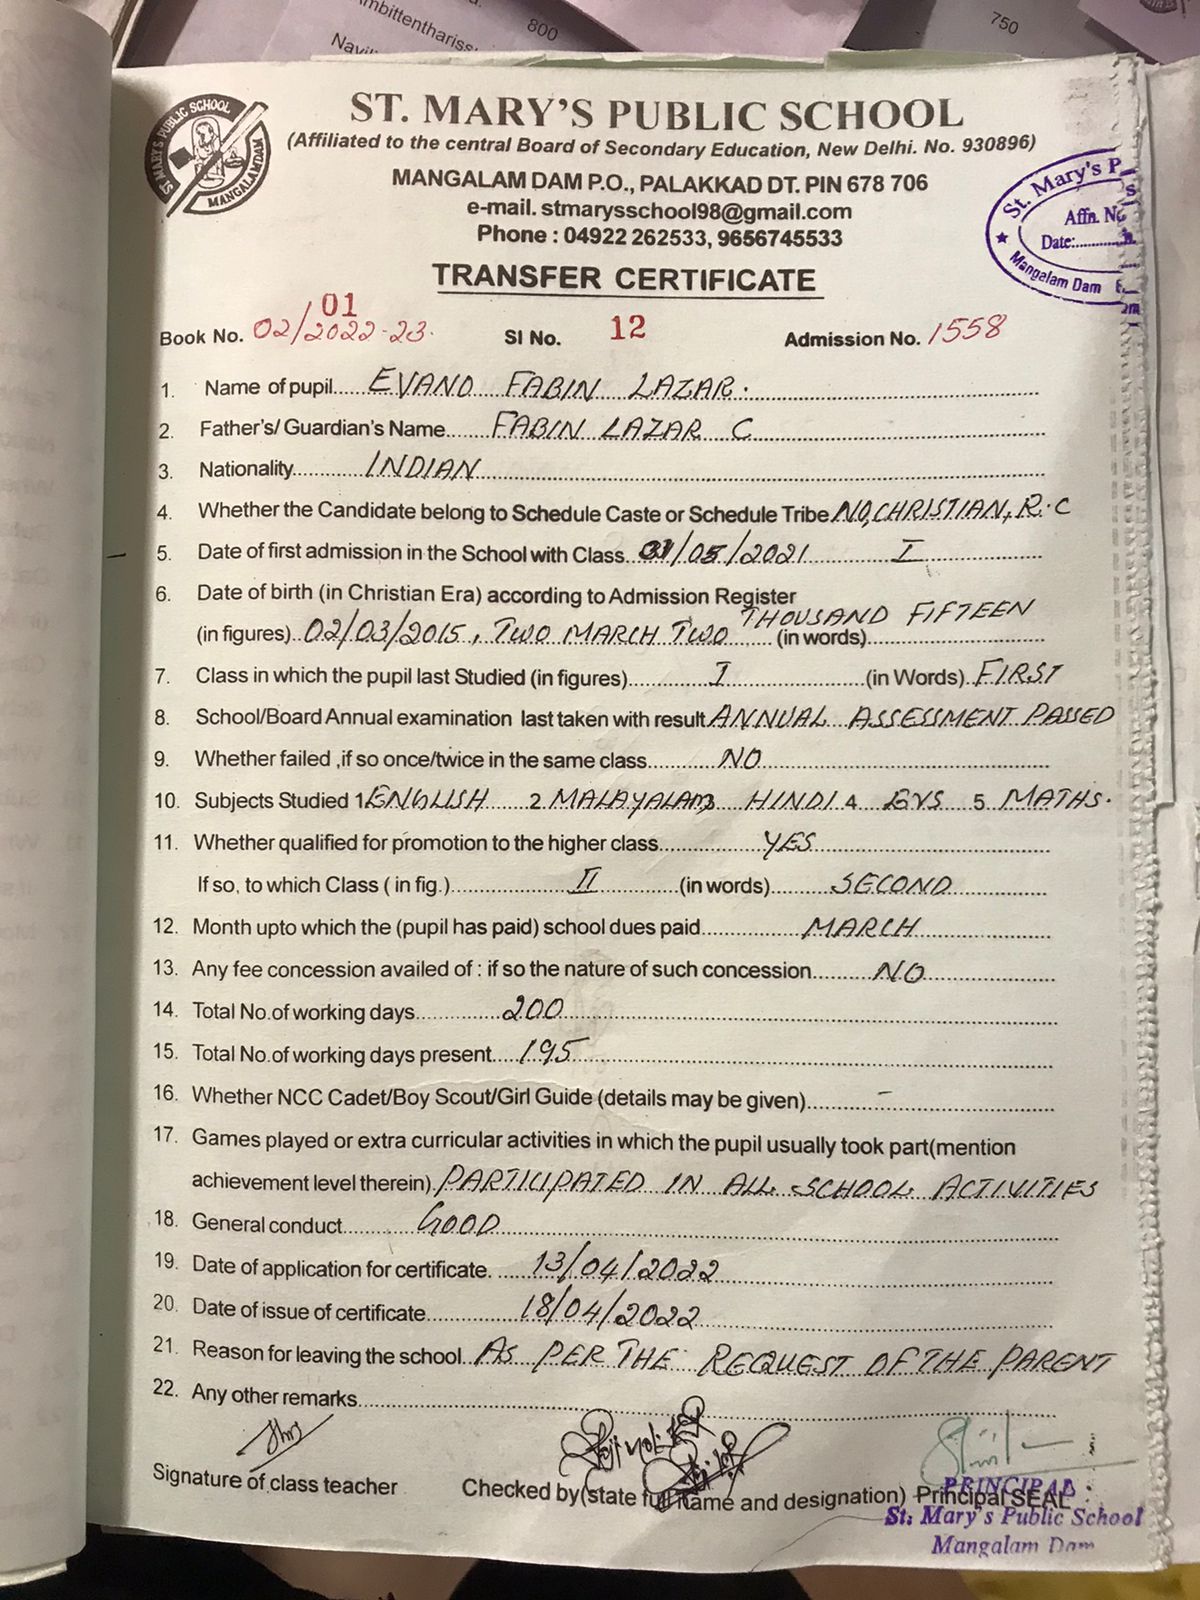 mbittenthariss
800
750
Navi
ST MARY'S PUBLIC SCHOOL
MANGALAMDAM
ST. MARY'S PUBLIC SCHOOL
(Affiliated to the central Board of Secondary Education, New Delhi. No. 930896)
MANGALAM DAM P.O., PALAKKAD DT. PIN 678 706
e-mail. stmarysschool98@gmail.com
Phone : 04922 262533, 9656745533
St. Mary's P
Affn. No
Date:
Mangalam Dam
TRANSFER CERTIFICATE
Book No. 02/2022-23. 01 SI No. 12 Admission No. 1558
1. Name of pupil..... EVANO FABIN LAZAR.
2. Father's/ Guardian's Name...... FABIN LAZAR C
3. Nationality........... INDIAN
4. Whether the Candidate belong to Schedule Caste or Schedule Tribe NO, CHRISTIAN, R.C
5. Date of first admission in the School with Class. 01/05/2021 I
6. Date of birth (in Christian Era) according to Admission Register
(in figures) 02/03/2015, TWO MARCH TWO THOUSAND FIFTEEN (in words)
7. Class in which the pupil last Studied (in figures) I (in Words) FIRST
8. School/Board Annual examination last taken with result ANNUAL ASSESSMENT PASSED
9. Whether failed ,if so once/twice in the same class NO
10. Subjects Studied 1 ENGLISH 2 MALAYALAM 3 HINDI 4 EVS 5 MATHS.
11. Whether qualified for promotion to the higher class YES
If so, to which Class ( in fig.) II (in words) SECOND
12. Month upto which the (pupil has paid) school dues paid MARCH
13. Any fee concession availed of : if so the nature of such concession NO
14. Total No.of working days 200
15. Total No.of working days present 195
16. Whether NCC Cadet/Boy Scout/Girl Guide (details may be given) -
17. Games played or extra curricular activities in which the pupil usually took part(mention
achievement level therein) PARTICIPATED IN ALL SCHOOL ACTIVITIES
18. General conduct GOOD
19. Date of application for certificate. 13/04/2022
20. Date of issue of certificate 18/04/2022
21. Reason for leaving the school. AS PER THE REQUEST OF THE PARENT
22. Any other remarks
Signature of class teacher Checked by(state full name and designation) Principal SEAL
PRINCIPAL
St. Mary's Public School
Mangalam Dam